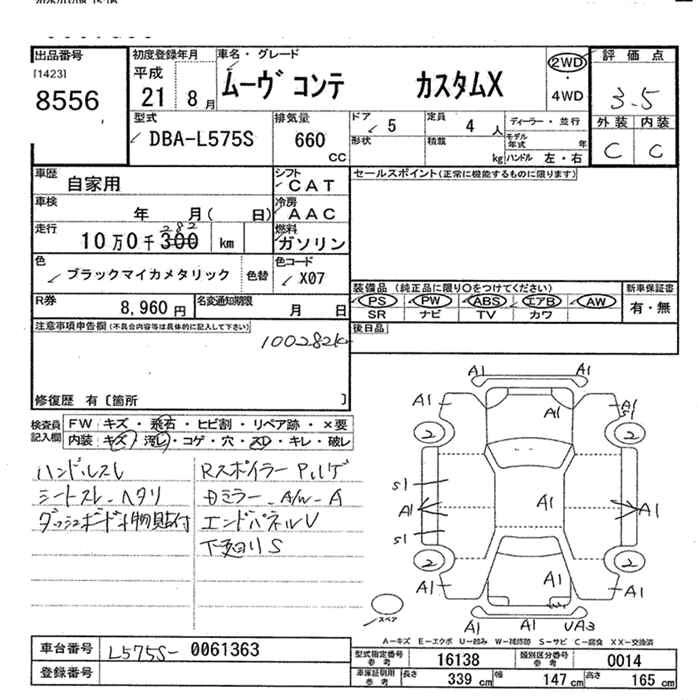 出品番号
[1423]
8556
初度登録年月
平成
21年 8月
車名・グレード
ムーヴ コンテ カスタムX
2WD
・
4WD
評価点
3.5
外装 内装
C C
型式
DBA-L575S
排気量
660
CC
ドア
5
定員
4 人
形状
積載
kg
ディーラー・並行
モデル年式 年
ハンドル 左・右
車歴
自家用
シフト
CAT
車検
年 月( 日)
冷房
AAC
走行
10万0千300 km
282
燃料
ガソリン
色
ブラックマイカメタリック
色替
色コード
X07
R券
8,960円
名変通知期限
月 日
セールスポイント(正常に機能するものに限ります)
装備品 (純正品に限り○をつけてください)
PS PW ABS エアB AW
SR ナビ TV カワ
新車保証書
有・無
後日品
注意事項申告欄(不具合内容等は具体的に記入して下さい)
100282K
修復歴 有〔箇所 〕
検査員記入欄
FW キズ・飛石・ヒビ割・リペア跡・×要
内装 キズ・汚レ・コゲ・穴・スレ・キレ・破レ
ハンドルスレ
シートスレ・ヘタリ
ダッシュボード小物貼付
Rスポイラー Pハゲ
Dミラー、A/W-A
エンドパネルU
下廻りS
A1 A1
A1 A1 A1
S1
2 2
S1
A1 A1 A1
S1
2 2
A1 A1 A1
A1 A1 UA3
スペア
A-キズ E-エクボ U-凹み W-補修跡 S-サビ C-腐食 XX-交換済
車台番号
L575S- 0061363
登録番号
型式指定番号
参考
16138
類別区分番号
参考
0014
車庫証明用
参考
長さ 339 cm 幅 147 cm 高さ 165 cm